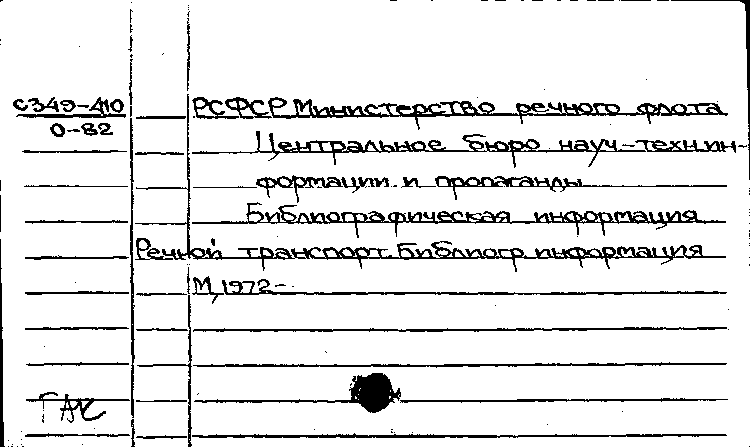 С349-410 РСФСР Министерство речного флота
О-82
Центральное бюро науч-техн.ин-
формации и пропаганды
Библиографическая информация
Речной транспорт. Библиогр. информация
М, 1972-
ГАК